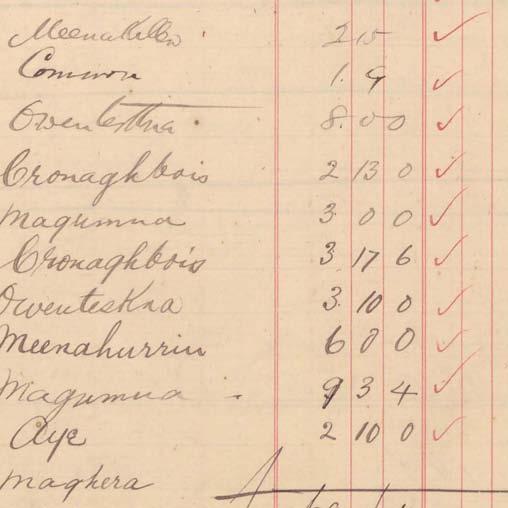 Meenakillew 2 15
Common 1. 9
Owenteskna 8. 0 0
Cronaghbois 2 13 0
Magumna 3 0 0
Cronaghbois 3 17 6
Owenteskna 3 10 0
Meenahurrin 6 0 0
Magumna 9 3 4
Aye 2 10 0
Maghera